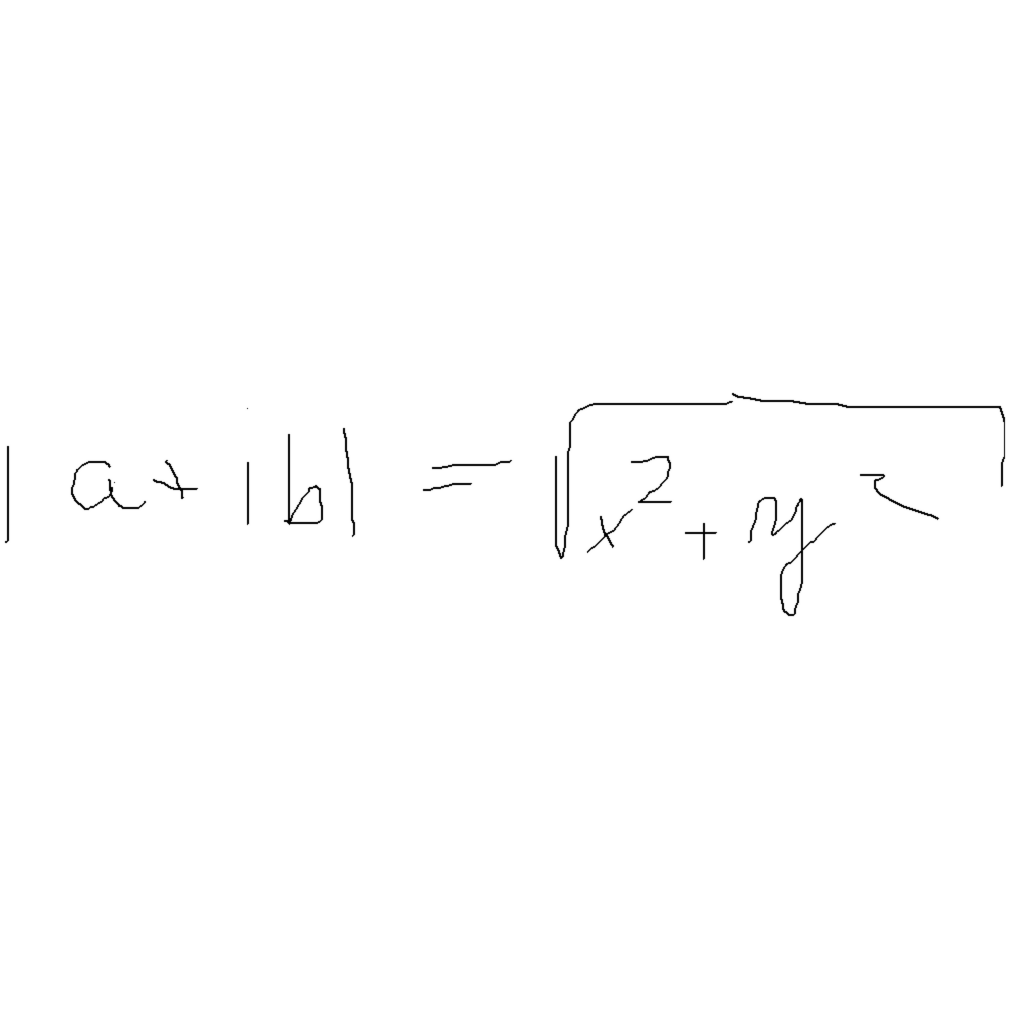 |a+ib| = √(x²+y²)